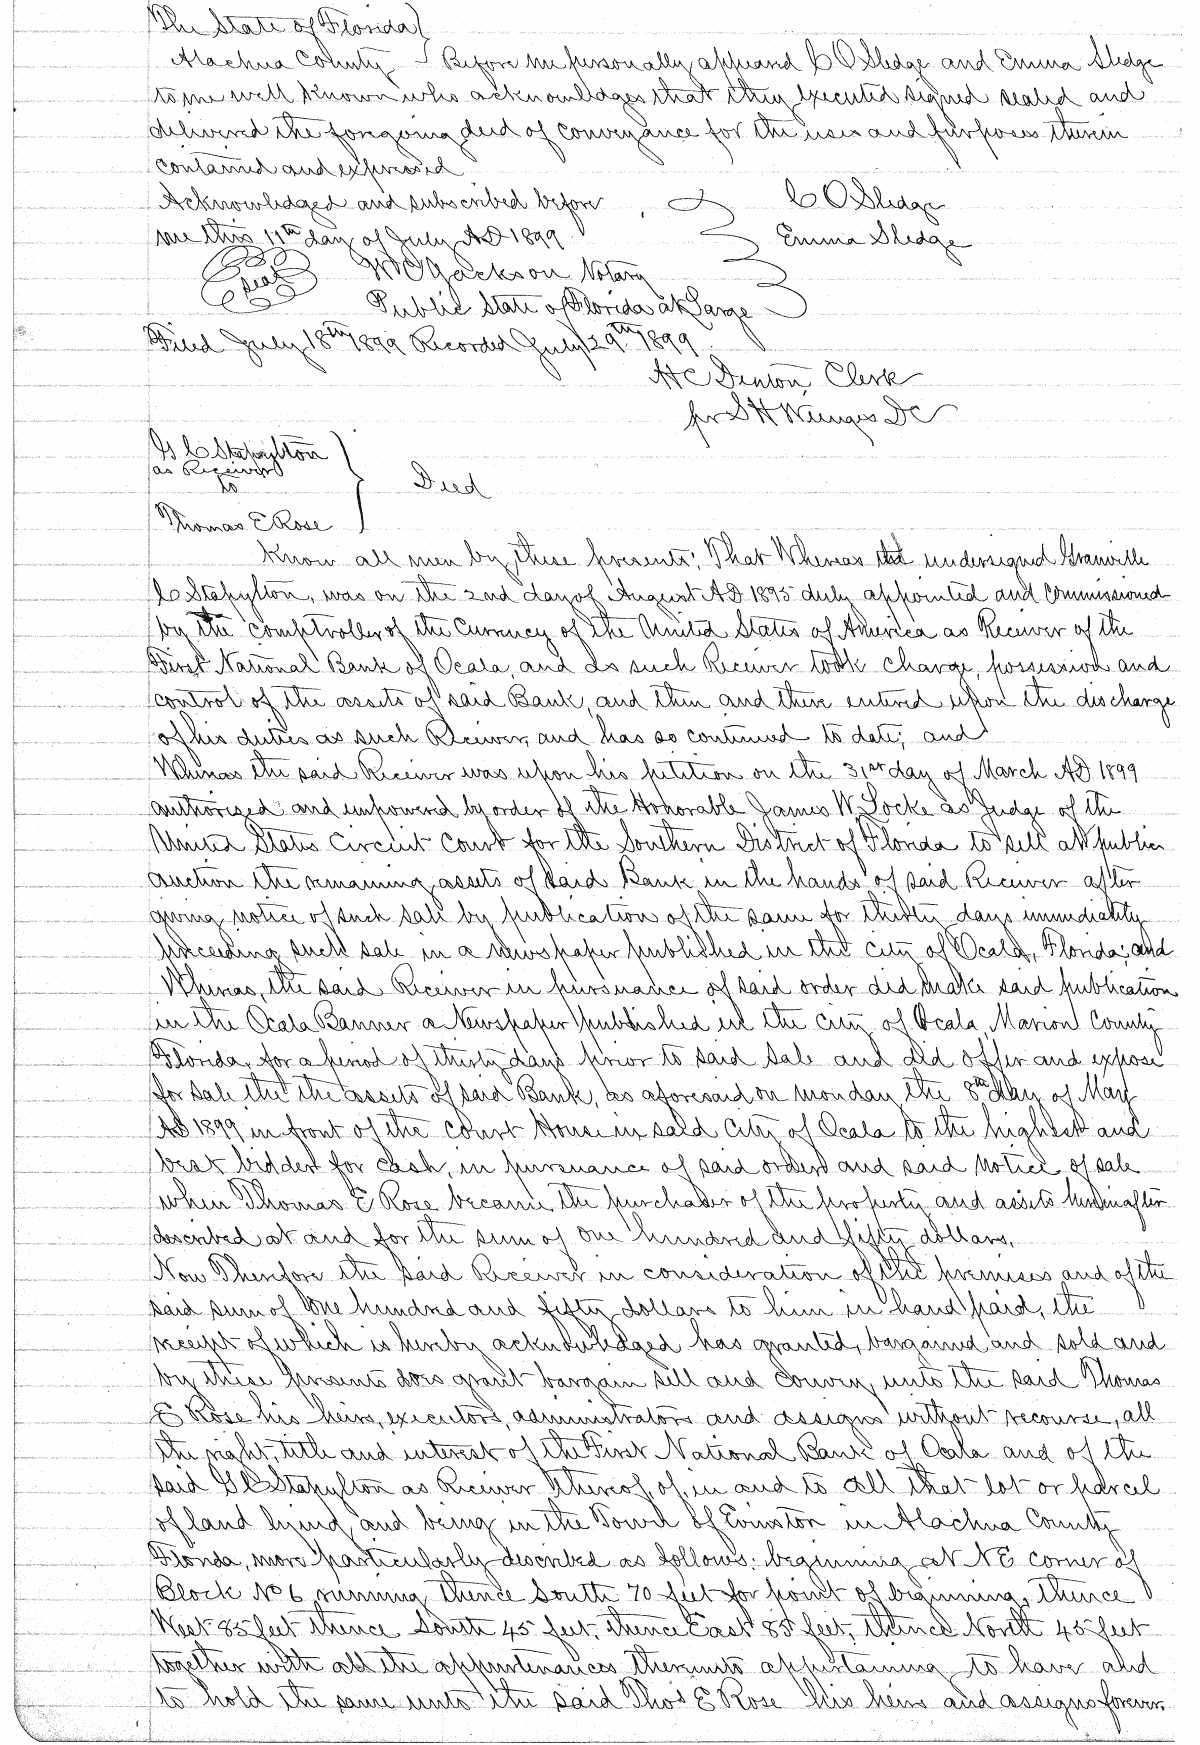 The State of Florida }
Alachua County } Before me personally appeared C O Sledge and Emma Sledge
to me well known who acknowledges that they executed signed sealed and
delivered the foregoing deed of conveyance for the uses and purposes therein
contained and expressed
Acknowledged and subscribed before C O Sledge
me this 11th day of July AD 1899 Emma Sledge
Seal W C Jackson Notary
Public State of Florida at Large
Filed July 18th 1899 Recorded July 29th 1899
H C Denton, Clerk
pr S H Wienges DC
G C Stapylton
as Receiver
to Deed
Thomas E Rose
Know all men by these presents; That Whereas the undersigned Granville
C Stapylton, was on the 2nd day of August AD 1895 duly appointed and commissioned
by the comptroller of the Currency of the United States of America as Receiver of the
First National Bank of Ocala, and as such Receiver took charge, possession and
control of the assets of said Bank, and then and there entered upon the discharge
of his duties as such Receiver, and has so continued to date; and
Whereas the said Receiver was upon his petition on the 31st day of March AD 1899
authorised and empowered by order of the Honorable James W. Locke as Judge of the
United States Circuit Court for the Southern District of Florida to sell at public
auction the remaining assets of said Bank in the hands of said Receiver after
giving notice of such sale by publication of the same for thirty days immediately
preceeding such sale in a newspaper published in the city of Ocala, Florida; and
Whereas, the said Receiver in pursuance of said order did make said publication
in the Ocala Banner a Newspaper published in the city of Ocala, Marion County
Florida, for a period of thirty days prior to said sale and did offer and expose
for sale the the assets of said Bank, as aforesaid on monday the 8th day of May
AD 1899 in front of the Court House in said City of Ocala to the highest and
best bidder for cash, in pursuance of said order and said notice of sale
when Thomas E Rose became the purchaser of the property and assets hereinafter
described at and for the sum of one hundred and fifty dollars,
Now Therefore the said Receiver in consideration of the premises and of the
said sum of One hundred and fifty dollars to him in hand paid, the
receipt of which is hereby acknowledged has granted, bargained and sold and
by these presents does grant bargain sell and convey, unto the said Thomas
E Rose his heirs, executors, administrators and assigns without recourse, all
the right, title and interest of the First National Bank of Ocala and of the
said G C Stapylton as Receiver thereof, of, in and to all that lot or parcel
of land lying and being in the Town of Evinston in Alachua County
Florida, more particularly described as follows: beginning at NE corner of
Block No 6 running thence South 70 feet for point of beginning, thence
West 85 feet thence South 45 feet, thence East 85 feet, thence North 45 feet
together with all the appurtenances thereunto appertaining to have and
to hold the same unto the said Thos E Rose his heirs and assigns forever.